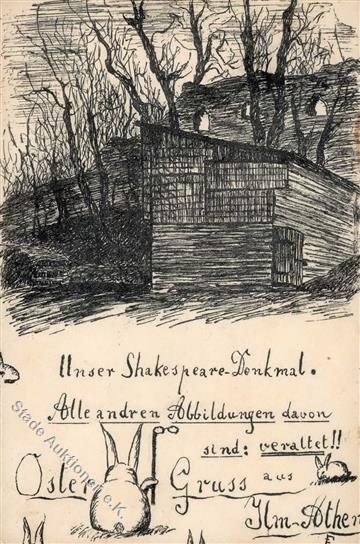 Unser Shakespeare-Denkmal.
Alle andren Abbildungen davon
sind: veraltet!!
Oster Gruss aus
Ilm-Athen
Stade Auktionen e.K.